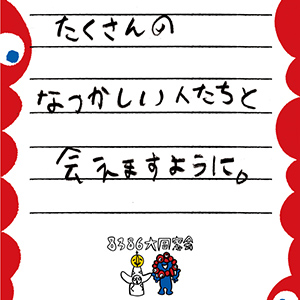 たくさんの
なつかしい人たちと
会えますように。
るろ86大同窓会